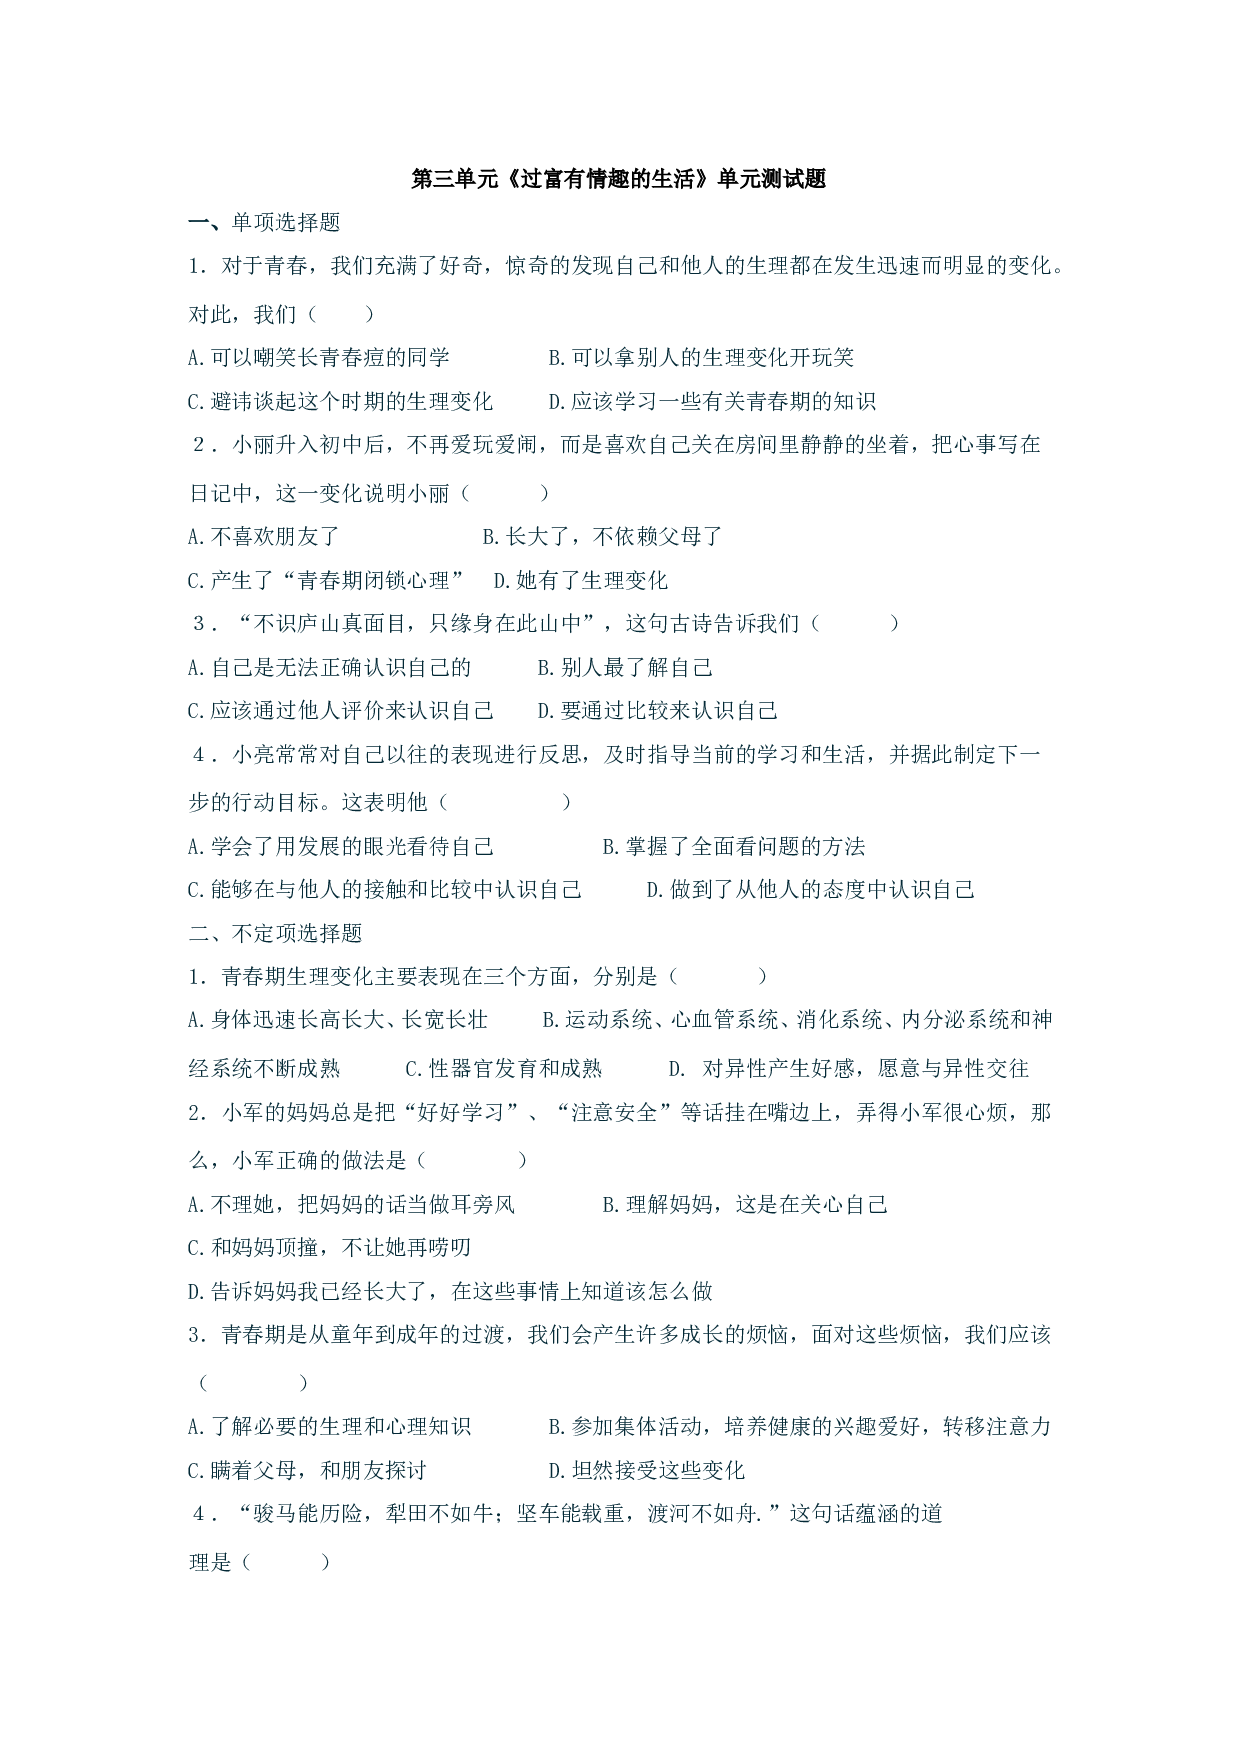 第三单元《过富有情趣的生活》单元测试题
一、单项选择题
1．对于青春，我们充满了好奇，惊奇的发现自己和他人的生理都在发生迅速而明显的变化。
对此，我们（　　）
A.可以嘲笑长青春痘的同学　　　　B.可以拿别人的生理变化开玩笑
C.避讳谈起这个时期的生理变化　　D.应该学习一些有关青春期的知识
２．小丽升入初中后，不再爱玩爱闹，而是喜欢自己关在房间里静静的坐着，把心事写在
日记中，这一变化说明小丽（　　　）
A.不喜欢朋友了　　　　　　B.长大了，不依赖父母了
C.产生了“青春期闭锁心理”　D.她有了生理变化
３．“不识庐山真面目，只缘身在此山中”，这句古诗告诉我们（　　　）
A.自己是无法正确认识自己的　　　B.别人最了解自己
C.应该通过他人评价来认识自己　　D.要通过比较来认识自己
４．小亮常常对自己以往的表现进行反思，及时指导当前的学习和生活，并据此制定下一
步的行动目标。这表明他（　　　　　）
A.学会了用发展的眼光看待自己　　　　　B.掌握了全面看问题的方法
C.能够在与他人的接触和比较中认识自己　　　D.做到了从他人的态度中认识自己
二、不定项选择题
1．青春期生理变化主要表现在三个方面，分别是（　　　）
A.身体迅速长高长大、长宽长壮　　B.运动系统、心血管系统、消化系统、内分泌系统和神
经系统不断成熟　　　C.性器官发育和成熟　　　D. 对异性产生好感，愿意与异性交往
2．小军的妈妈总是把“好好学习”、“注意安全”等话挂在嘴边上，弄得小军很心烦，那
么，小军正确的做法是（　　　　）
A.不理她，把妈妈的话当做耳旁风　　　　B.理解妈妈，这是在关心自己
C.和妈妈顶撞，不让她再唠叨
D.告诉妈妈我已经长大了，在这些事情上知道该怎么做
3．青春期是从童年到成年的过渡，我们会产生许多成长的烦恼，面对这些烦恼，我们应该
（　　　　）
A.了解必要的生理和心理知识　　　B.参加集体活动，培养健康的兴趣爱好，转移注意力
C.瞒着父母，和朋友探讨　　　　　D.坦然接受这些变化
４．“骏马能历险，犁田不如牛；坚车能载重，渡河不如舟.”这句话蕴涵的道
理是（　　　）